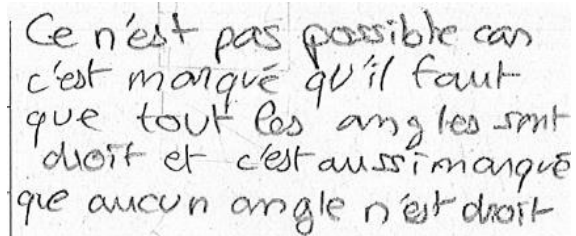 Ce n'est pas possible car
c'est marqué qu'il faut
que tout les angles sont
droit et c'est aussi marqué
que aucun angle n'est droit